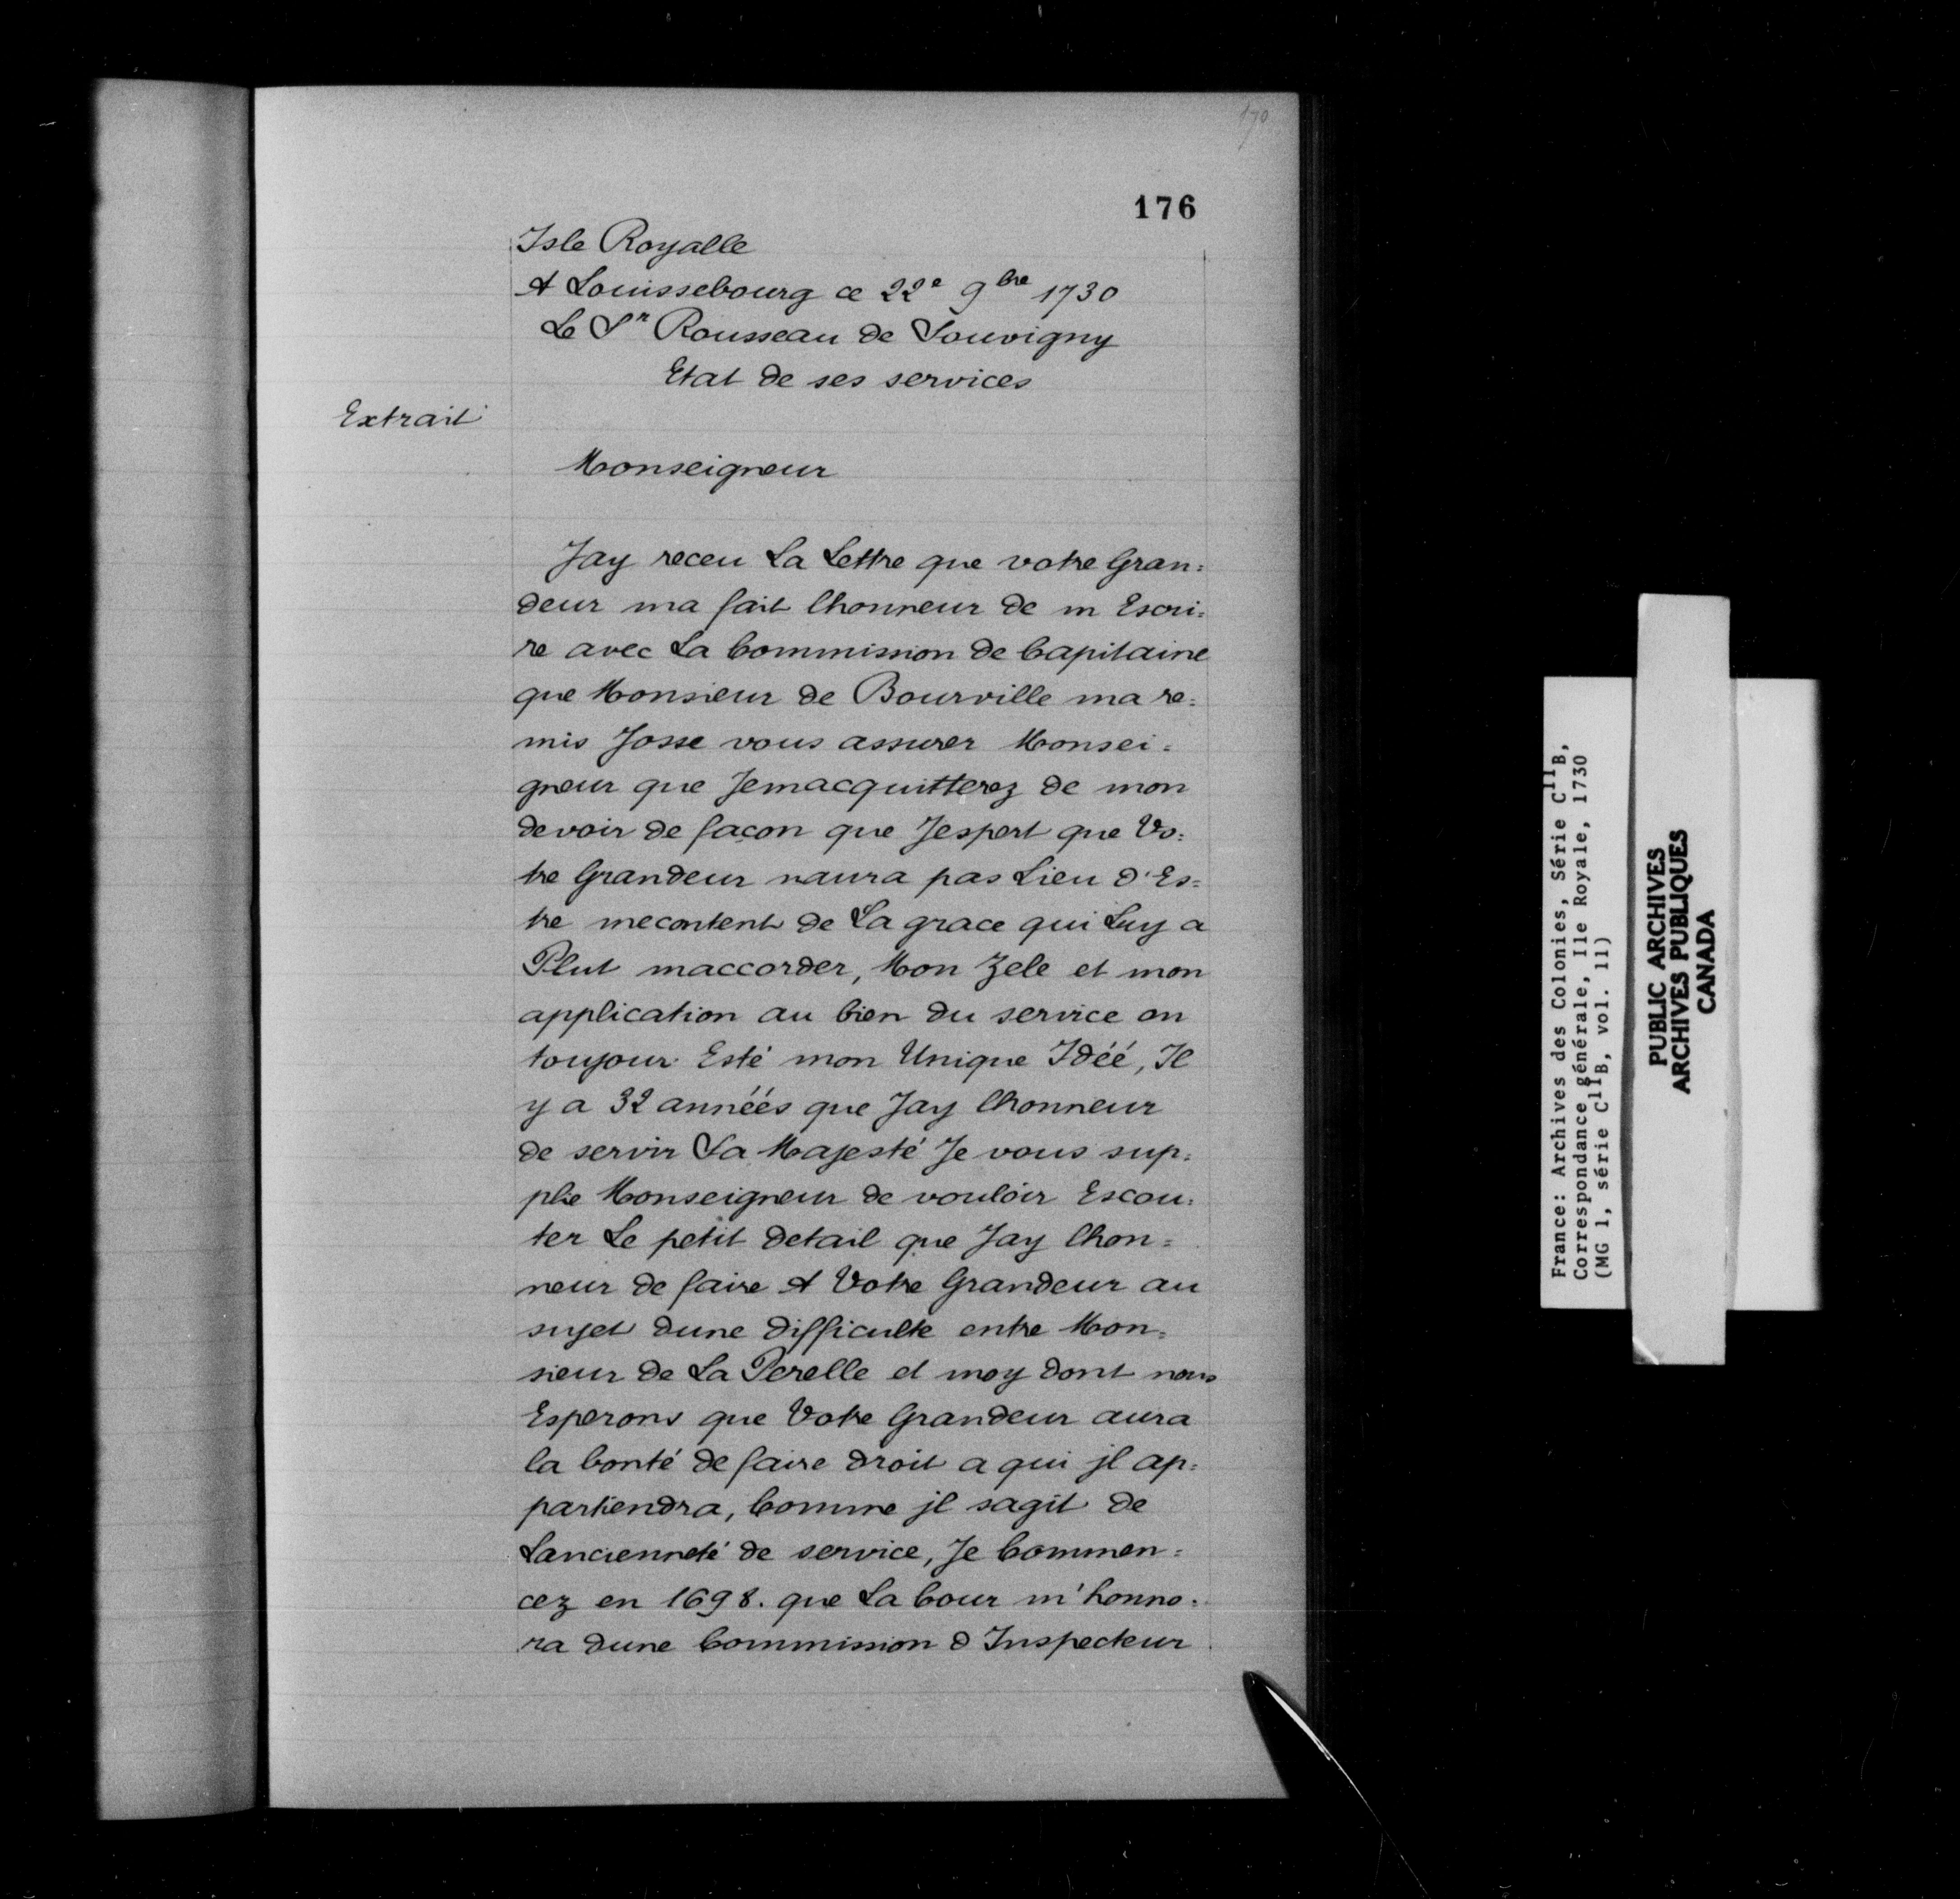 170
176
Isle Royalle
A Louissebourg ce 22e 9bre 1730
Le Sr Rousseau de Souvigny
Etat de ses services
Extrait
Monseigneur
Jay receu La Lettre que votre Gran=
deur ma fait lhonneur de m Escri=
re avec La Commission de Capitaine
que Monsieur de Bourville ma re=
mis Josse vous assurer Monsei=
gneur que Jemacquitterez de mon
devoir de façon que Jespert que Vo=
tre Grandeur naura pas Lieu d'Es=
tre mecontent de La grace qui Luy a
Plut maccorder, Mon Zele et mon
application au bien du service on
toujour Esté mon Unique Idéé, Il
y a 32 annéés que Jay lhonneur
de servir Sa Majesté Je vous sup=
plie Monseigneur de vouloir Escou=
ter Le petit detail que Jay lhon=
neur de faire A Votre Grandeur au
sujet dune difficulte entre Mon=
sieur de La Perelle et moy dont nous
Esperons que Votre Grandeur aura
la bonté de faire droit a qui jl ap=
partiendra, Comme jl sagit de
Lancienneté de service, Je Commen=
cez en 1698. que La Cour m'honno=
ra dune Commission d Inspecteur
France: Archives des Colonies, Série C11B,
Correspondance générale, Ile Royale, 1730
(MG 1, série C11B, vol. 11)
PUBLIC ARCHIVES
ARCHIVES PUBLIQUES
CANADA